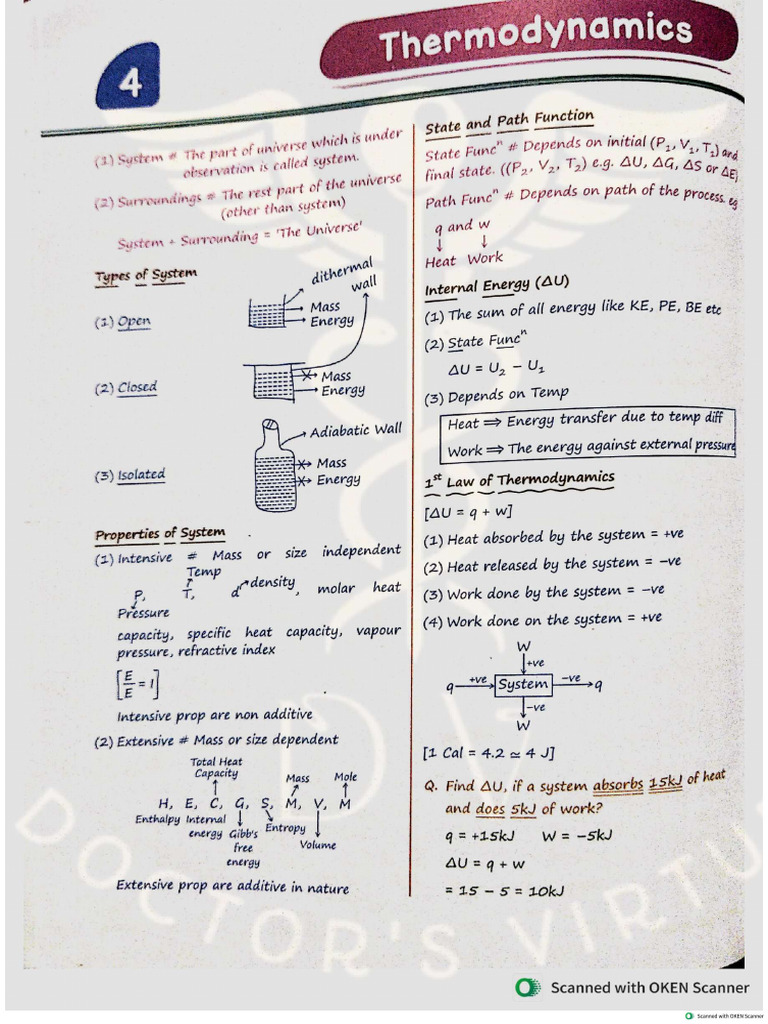 Thermodynamics
4
(1) System # The part of universe which is under
observation is called system.
(2) Surroundings # The rest part of the universe
(other than system)
System + Surrounding = 'The Universe'
Types of System
(1) Open
dithermal
wall
Mass
Energy
(2) Closed
Mass
Energy
(3) Isolated
Adiabatic Wall
Mass
Energy
Properties of System
(1) Intensive # Mass or size independent
Temp
P, T, d density, molar heat
Pressure
capacity, specific heat capacity, vapour
pressure, refractive index
[E/E = I]
Intensive prop are non additive
(2) Extensive # Mass or size dependent
Total Heat
Capacity
Mass Mole
H, E, C, G, S, M, V, M
Enthalpy Internal
energy
Gibb's
free
energy
Entropy
Volume
Extensive prop are additive in nature
State and Path Function
State Funcⁿ # Depends on initial (P₁, V₁, T₁) and
final state. ((P₂, V₂, T₂) e.g. ΔU, ΔG, ΔS or ΔE)
Path Funcⁿ # Depends on path of the process. eg
q and w
↓ ↓
Heat Work
Internal Energy (ΔU)
(1) The sum of all energy like KE, PE, BE etc
(2) State Funcⁿ
ΔU = U₂ − U₁
(3) Depends on Temp
Heat ⟹ Energy transfer due to temp diff
Work ⟹ The energy against external pressure
1st Law of Thermodynamics
[ΔU = q + w]
(1) Heat absorbed by the system = +ve
(2) Heat released by the system = −ve
(3) Work done by the system = −ve
(4) Work done on the system = +ve
W
+ve
q +ve System −ve q
−ve
W
[1 Cal = 4.2 ≃ 4 J]
Q. Find ΔU, if a system absorbs 15kJ of heat
and does 5kJ of work?
q = +15kJ W = −5kJ
ΔU = q + w
= 15 − 5 = 10kJ
DOCTOR'S VIRTU
Scanned with OKEN Scanner
Scanned with OKEN Scanner